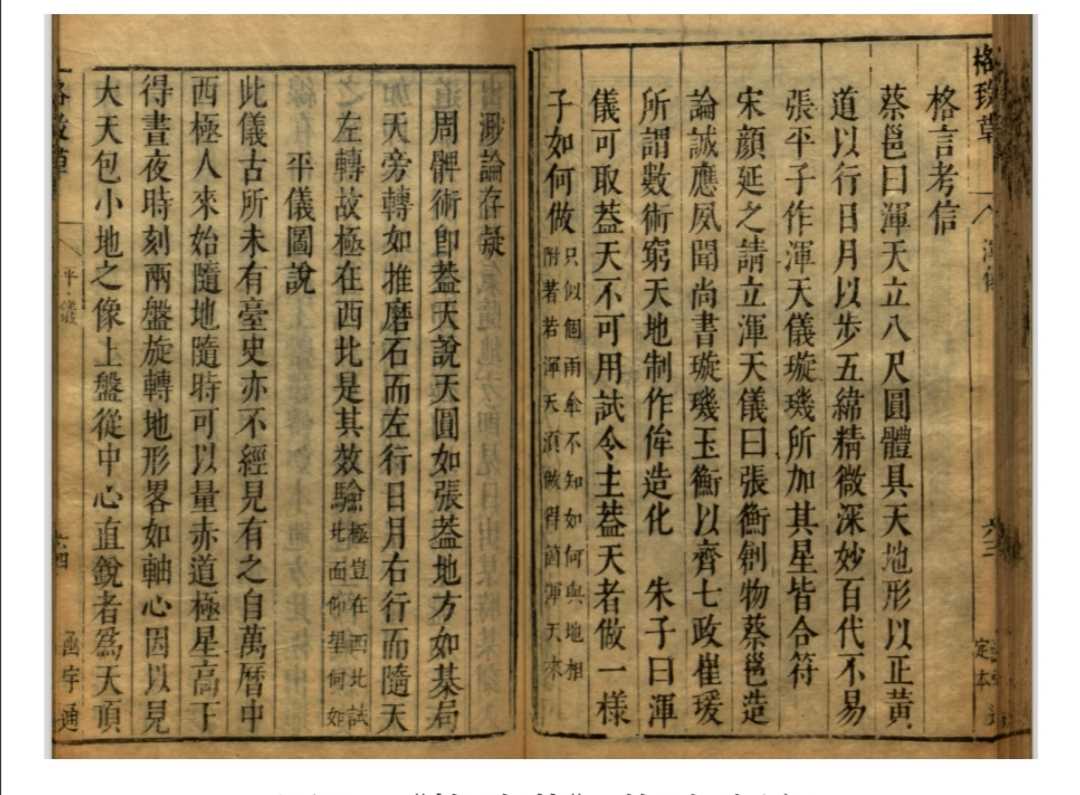 格致草
渾儀
定本
格言考信
蔡邕曰渾天立八尺圓體具天地形以正黃
道以行日月以步五緯精微深妙百代不易
張平子作渾天儀璇璣所加其星皆合符
宋顏延之請立渾天儀曰張衡創物蔡邕造
論誠應夙聞尚書璇璣玉衡以齊七政崔瑗
所謂數術窮天地制作侔造化 朱子曰渾
儀可取蓋天不可用試令主蓋天者做一樣
子如何做
只似個雨傘不知如何與地相
附著若渾天須做得箇渾天來
渺論存疑
周髀術卽蓋天說天圓如張蓋地方如棊局
天旁轉如推磨石而左行日月右行而隨天
之左轉故極在西北是其效驗
極豈在西北試
北面仰望何如
平儀圖說
此儀古所未有臺史亦不經見有之自萬曆中
西極人來始隨地隨時可以量赤道極星高下
得晝夜時刻兩盤旋轉地形畧如軸心因以見
大天包小地之像上盤從中心直銳者爲天頂
格致草
平儀
函宇通